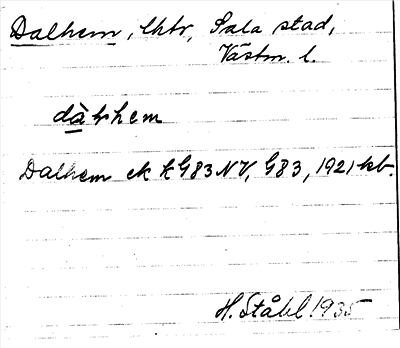 Dalhem, lhtr, Sala stad,
Västm. l.
dàhem
Dalhem ek kG83NV, G83, 1921 kb.
H. Ståhl 1935